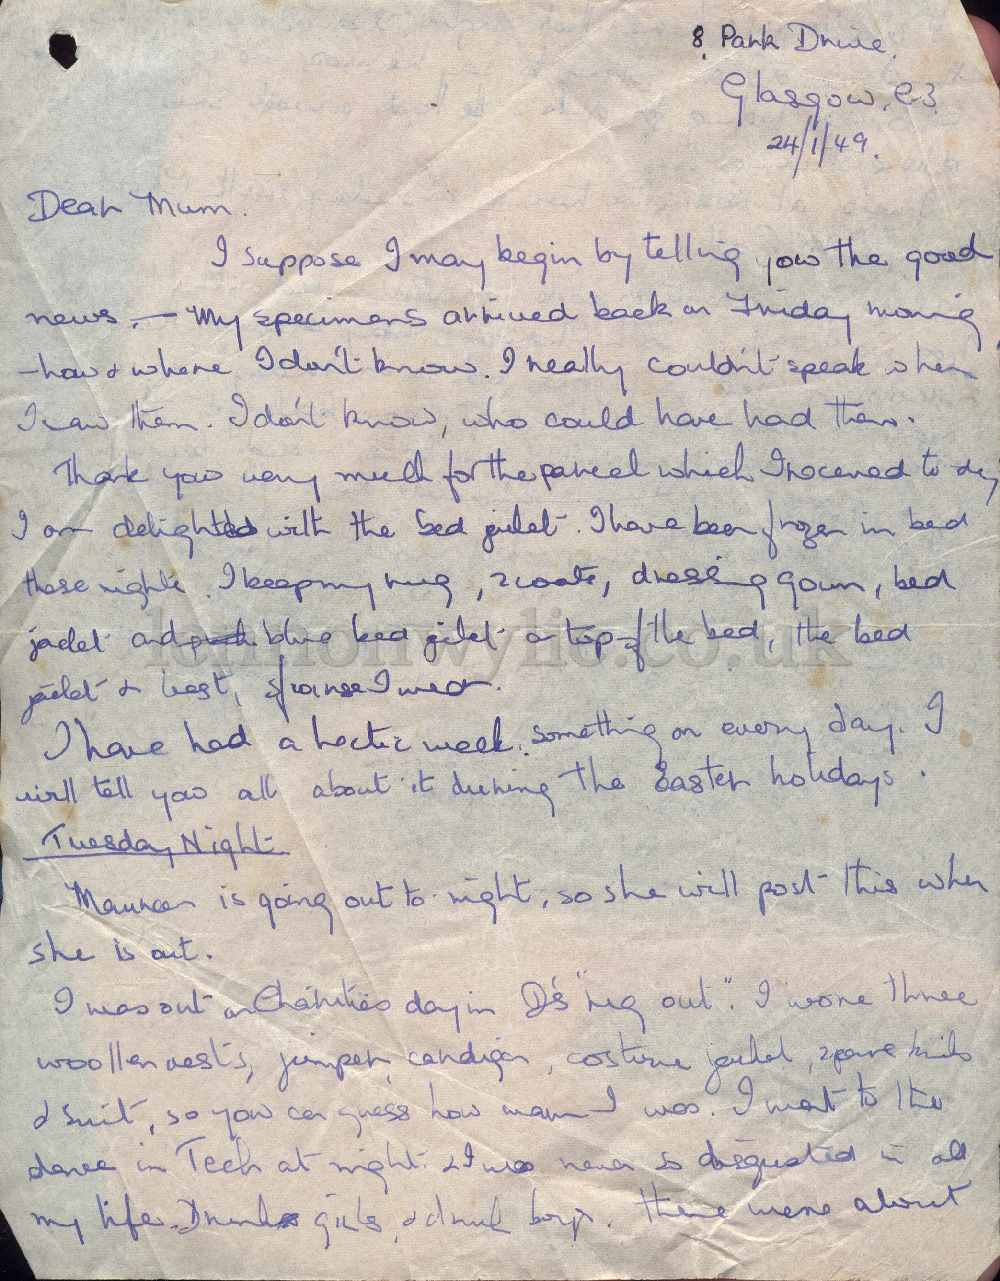 8, Park Drive,
Glasgow, C.3.
24/1/49.
Dear Mum.
I suppose I may begin by telling you the good
news. — My specimens arrived back on Friday morning
— how & where I don't know. I really couldn't speak when
I saw them. I don't know, who could have had them.
Thank you very much for the parcel which I received to-day
I am delighted with the bed jacket. I have been frozen in bed
these nights. I keep my rug, 2 coats, dressing gown, bed
jacket and blue bed jacket on top of the bed, the bed
jacket & vest, of course I wear.
I have had a hectic week, something on every day. I
will tell you all about it during the Easter holidays.
Tuesday Night
Maureen is going out to-night, so she will post this when
she is out.
I was out on Charities day in D's "rig out". I wore three
woollen vests, jumper, cardigan, costume jacket, 2 pare knicks
& suit, so you can guess how warm I was. I went to the
dance in Tech at night & I was never so disgusted in all
my life. Drunk girls & drunk boys. There were about
lennonwylie.co.uk